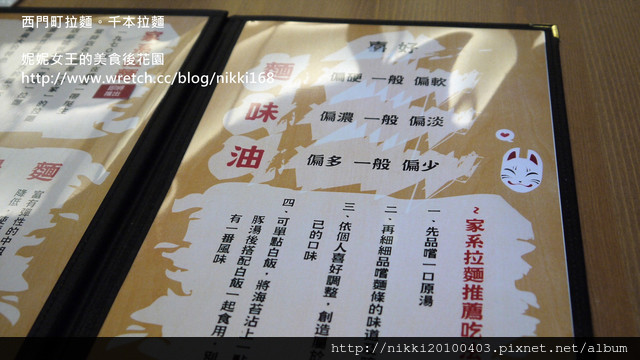 西門町拉麵。千本拉麵
妮妮女王的美食後花園
http://www.wretch.cc/blog/nikki168
喜好
麵 偏硬 一般 偏軟
味 偏濃 一般 偏淡
油 偏多 一般 偏少
~家系拉麵推薦吃
一、先品嚐一口原湯
二、再細細品嚐麵條的味道
三、依個人喜好調整，創造屬於
己的口味
四、可單點白飯，將海苔沾上一點
豚湯後搭配白飯一起食用，
有一番風味
麵
富有彈性的中粗
http://nikki20100403.pixnet.net/album